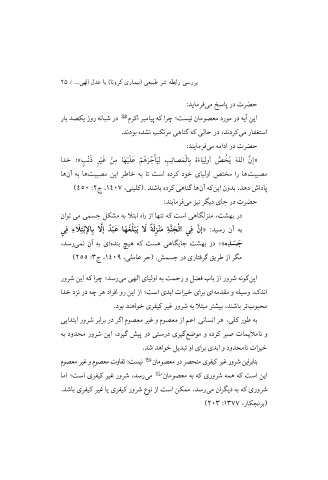 بررسی رابطه شر طبیعی (بیماری کرونا) با عدل الهی... / ۲۵
حضرت در پاسخ می‌فرماید:
این آیه در مورد معصومان نیست؛ چرا که پیامبر اکرمﷺ در شبانه روز یکصد بار
استغفار می‌کردند، در حالی که گناهی مرتکب نشده بودند.
حضرت در ادامه می‌فرمایند:
«إِنَّ اللهَ یَخُصُّ أَولِیَاءَهُ بِالْمَصائِبِ لِیَأْجُرَهُمْ عَلَیْهَا مِنْ غَیْرِ ذَنْبٍ»؛ خدا
مصیبت‌ها را مختص اولیای خود کرده است تا به خاطر این مصیبت‌ها به آن‌ها
پاداش دهد، بدون این‌که آن‌ها گناهی کرده باشند .(کلینی، ۱۴۰۷، ج۲: ۴۵۰)
حضرت در جای دیگر نیز می‌فرمایند:
در بهشت، منزلگاهی است که تنها از راه ابتلا به مشکل جسمی می توان
به آن رسید: «إِنَّ فِي الْجَنَّةِ مَنْزِلَةً لَا یَبْلُغُهَا عَبْدٌ إِلَّا بِالِابْتِلَاءِ فِي
جَسَدِهِ»؛ در بهشت جایگاهی هست که هیچ بنده‌ای به آن نمی‌رسد،
مگر از طریق گرفتاری در جسمش. (حر عاملی، ۱۴۰۹، ج۳: ۲۵۵)
این‌گونه شرور از باب فضل و رحمت به اولیای الهی می‌رسد؛ چرا که این شرور
اندک، وسیله و مقدمه‌ای برای خیرات ابدی است؛ از این رو افراد هر چه در نزد خدا
محبوب‌تر باشند، بیشتر مبتلا به شرور غیر کیفری خواهند بود.
به طور کلی، هر انسانی اعم از معصوم و غیر معصوم اگر در برابر شرور ابتدایی
و ناملایمات صبر کرده و موضع‌گیری درستی در پیش گیرد، این شرور محدود به
خیرات نامحدود و ابدی برای او تبدیل خواهد شد.
بنابراین شرور غیر کیفری منحصر در معصومان نیست؛ تفاوت معصوم و غیر معصوم
این است که همه شروری که به معصومان می‌رسد، شرور غیر کیفری است؛ اما
شروری که به دیگران می‌رسد، ممکن است از نوع شرور کیفری یا غیر کیفری باشد.
(برنجکار، ۱۳۷۷: ۲۰۳)